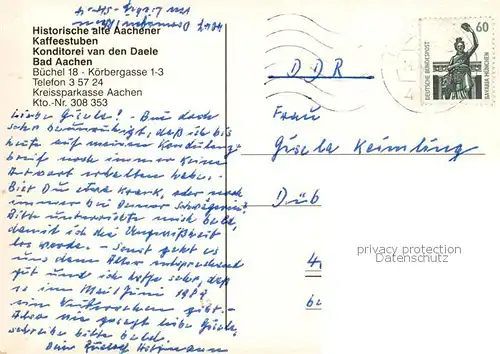 Historische alte Aachener
Kaffeestuben
Konditorei van den Daele
Bad Aachen
Büchel 18 - Körbergasse 1-3
Telefon 3 57 24
Kreissparkasse Aachen
Kto.-Nr. 308 353
Liebe Gisela! - Bin doch
sehr beunruhigt, daß ich bis
heute auf meinen Kondolenz-
brief noch immer keine
Antwort erhalten habe. -
Bist Du etwa krank, oder noch
immer bei Deiner Schwägerin?
Bitte unterrichte mich bald,
damit ich die Ungewißheit
los werde. - Sonst geht es
uns dem Alter entsprechend
gut und ich hoffe sehr, daß
es im Mai/Juni 1989
ein Wiedersehen gibt. -
Also wie gesagt liebe Gisela,
schreibe bitte bald.
Dein
DDR
Frau
Gisela Keimling
Düb
60
DEUTSCHE BUNDESPOST
BAVARIA MÜNCHEN
privacy protection
Datenschutz